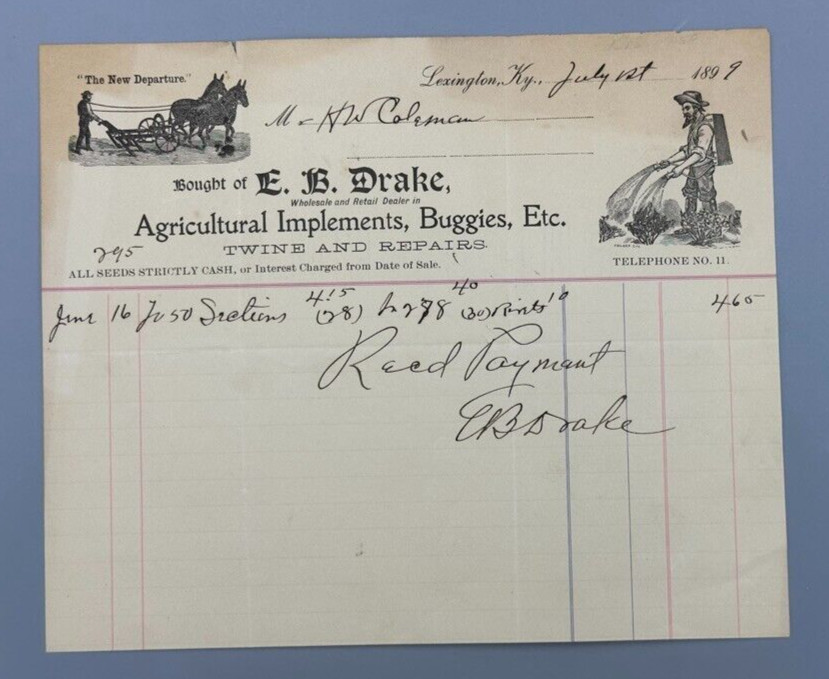 "The New Departure."
Lexington, Ky., July 1st 1899
M r H W Coleman
Bought of E. B. Drake,
Wholesale and Retail Dealer in
Agricultural Implements, Buggies, Etc.
TWINE AND REPAIRS.
295
ALL SEEDS STRICTLY CASH, or Interest Charged from Date of Sale.
TELEPHONE NO. 11.
June 16 To 50 Sections 4.15 (28) 278 40 (30) Rivits 10 465
Recd Paymant
EB Drake